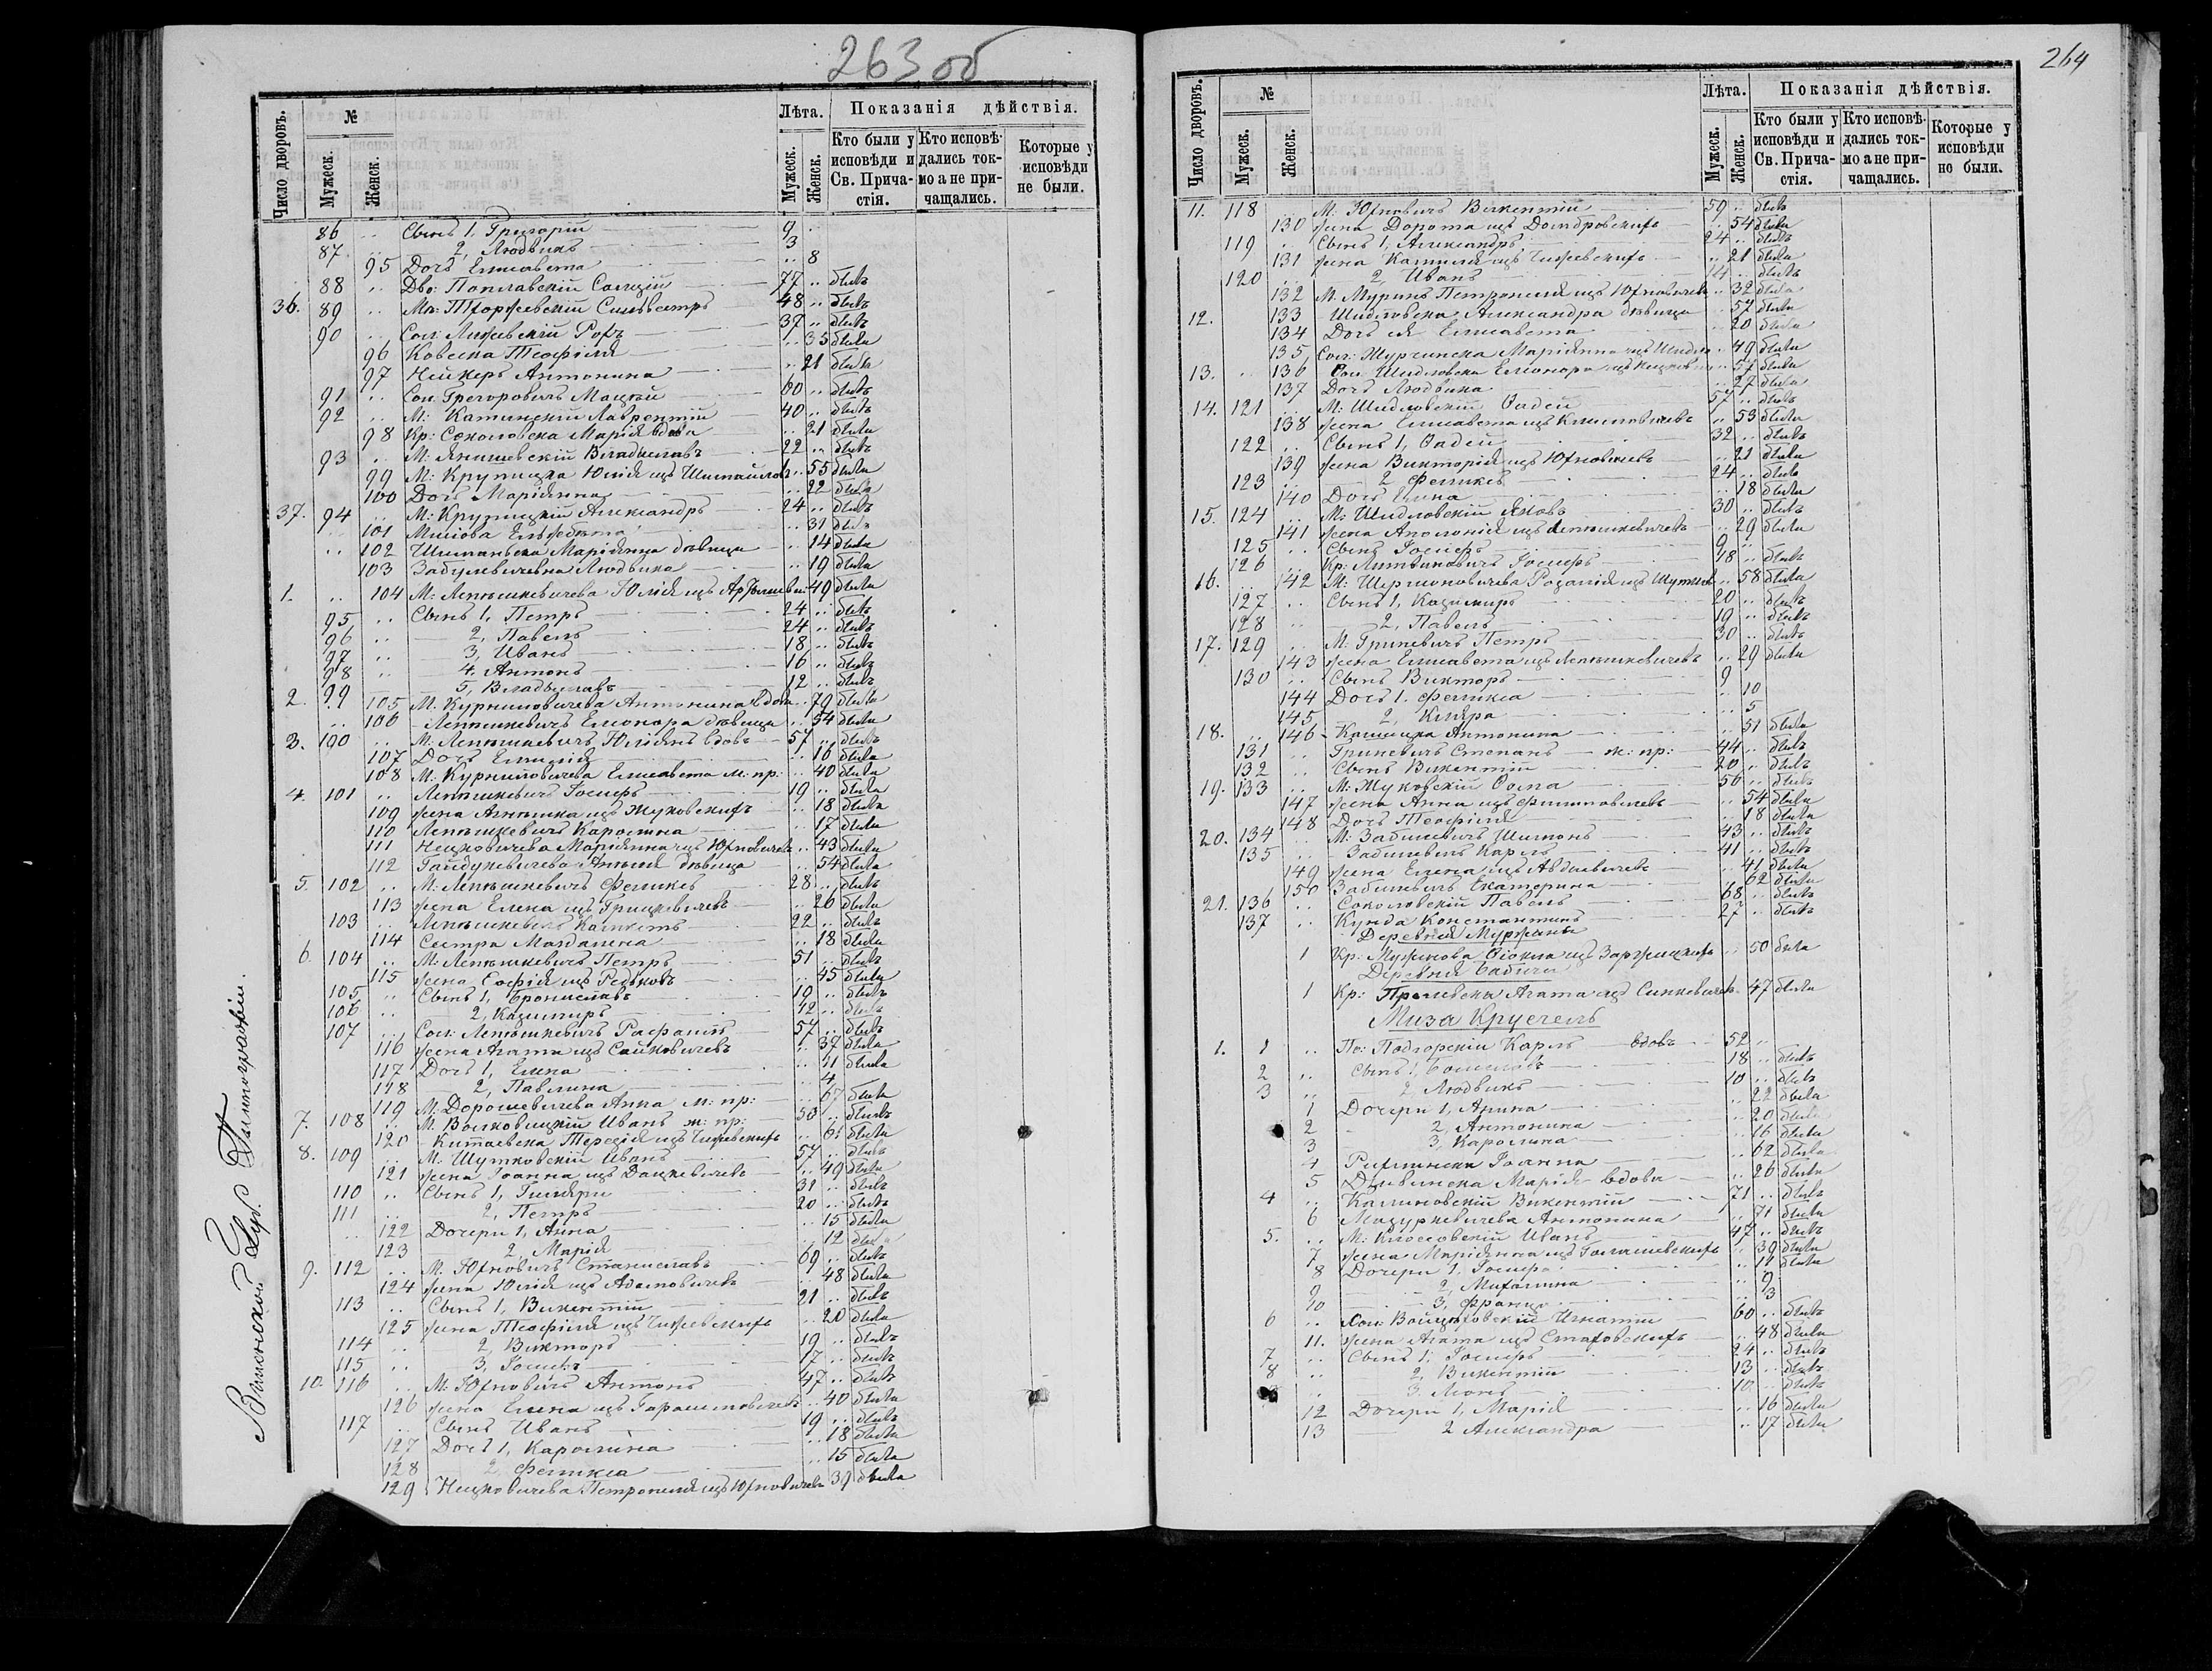 263 об
Число дворовъ. № Мужеск. Женск. Лѣта. Мужеск. Женск. Показанія дѣйствія. Кто были у исповѣди и Св. Прича-стія. Кто исповѣ-дались ток-мо а не при-чащались. Которые у исповѣди не были.
86 .. Сынъ 1, Григорій 9
87 .. 2, Людвикъ 3
95 Дочь Елисавета .. 8
88 .. Дво: Поплавскій 77 .. былъ
36. 89 .. Мѣ: Сильвестръ 48 .. былъ
90 .. Сол: 37 .. былъ
96 Теофиля .. 35 была
97 Антонина .. 21 была
91 .. Сол: Грегоровичъ 60 .. былъ
92 .. М: Катинскій Лаврентій 40 .. былъ
98 Кр: Соколовска Марія вдова .. 21 была
93 .. М: Янишевскій Владиславъ 22 .. былъ
99 М: Крупицка Юлія изъ .. 55 была
100 Дочь Маріянна .. 22 была
37. 94 .. М: Крупицкій Александръ 24 .. былъ
101 .. 31 была
.. 102 Маріянна дѣвица .. 14 была
103 Людвика .. 19 была
1. .. 104 М: Лепѣшкевичева Юлія изъ 49 была
95 .. Сынъ 1, Петръ 24 .. былъ
96 .. 2, Павелъ 24 .. былъ
97 .. 3, Иванъ 18 .. былъ
98 .. 4, Антонъ 16 .. былъ
99 5, Владиславъ 12 .. былъ
2. 105 М: Курниловичева Антонина вдова .. 79 была
.. 106 Лепѣшкевичъ Елионора дѣвица .. 54 была
3. 100 .. М: Лепѣшкевичъ Юліянъ вдовъ 57 .. былъ
107 Дочь Емилія .. 16 была
108 М: Курниловичева Елисавета м: пр: .. 40 была
4. 101 .. Лепѣшкевичъ Іосифъ 19 .. была
109 жена Агнѣшка изъ Жуковскихъ .. 18 была
110 Лепѣшкевичъ Каролина .. 17 была
111 Нецковичева Маріянна изъ Юхновичевъ .. 43 была
112 Гайдукевичева дѣвица .. 54 была
5. 102 .. М: Лепѣшкевичъ Феликсъ 28 .. былъ
113 жена Елена изъ Грицкевичевъ .. 26 была
103 .. Лепѣшкевичъ 22 .. былъ
114 Сестра Магдалена .. 18 была
6. 104 .. М: Лепѣшкевичъ Петръ 51 .. былъ
115 жена Софія изъ .. 45 была
105 .. Сынъ 1, Брониславъ 19 .. былъ
106 .. 2, Казимиръ 12 .. былъ
107 .. Сол: Лепѣшкевичъ Рафаилъ 57 .. былъ
116 жена Агата изъ .. 37 была
117 Дочь 1, Елена .. 11 была
118 2, Павлина .. 4
119 М: Дорошевичева Анна м: пр: .. 67 была
7. 108 .. М: Волковицкій Иванъ м: пр: 50 .. былъ
120 Китаевска Тересія изъ Чижевскихъ .. 61 была
8. 109 .. М: Шутковскій Иванъ 57 .. былъ
121 жена Іоанна изъ Дацкевичевъ .. 49 была
110 .. Сынъ 1, Гиляри 31 .. былъ
111 .. 2, Петръ 20 .. былъ
.. 122 Дочери 1, Анна .. 15 была
123 2, Марія .. 12 была
9. 112 .. М: Юхновичъ Станиславъ 69 .. былъ
124 жена Юлія изъ Адамовичевъ .. 48 была
113 .. Сынъ 1, Викентій 21 .. былъ
125 жена Теофиля изъ Чижевскихъ .. 20 была
114 .. 2, Викторъ 19 .. былъ
115 .. 3, Іосифъ 17 .. былъ
10. 116 .. М: Юхновичъ Антонъ 47 .. былъ
126 жена Елена изъ .. 40 была
117 .. Сынъ Иванъ 19 .. былъ
127 Дочь 1, Каролина .. 18 была
128 2, Феликса .. 15 была
129 Нецковичева Петронеля изъ Юхновичевъ 39 была
Виленской Губ.
264
Число дворовъ. № Мужеск. Женск. Лѣта. Мужеск. Женск. Показанія дѣйствія. Кто были у исповѣди и Св. Прича-стія. Кто исповѣ-дались ток-мо а не при-чащались. Которые у исповѣди не были.
11. 118 М: Юхновичъ Викентій 59 .. былъ
130 жена Дорота изъ Домбровскихъ .. 54 была
119 .. Сынъ 1, Александръ 24 .. былъ
131 жена Камиля изъ Чижевскихъ .. 21 была
120 .. 2, Иванъ 14 .. былъ
132 М: Муринъ Петронеля изъ Юхновичевъ .. 32 была
12. 133 Шидловска Александра дѣвица .. 57 была
134 Дочь ея Елисавета .. 20 была
135 Сол: Журчинска Маріянна изъ .. 49 была
13. .. 136 Сол: Шидловска Елионора изъ .. 57 была
137 Дочь Людвика .. 27 была
14. 121 .. М: Шидловскій Фадей 57 .. былъ
138 жена Елисавета изъ Климовичевъ .. 53 была
122 .. Сынъ 1, Фадей 32 .. былъ
139 жена Викторія изъ Юхновичевъ .. 21 была
123 .. 2 Феликсъ 24 .. былъ
140 Дочь Елена .. 18 была
15. 124 .. М: Шидловскій Яковъ 30 .. былъ
141 жена Аполонія изъ Лепѣшкевичевъ .. 29 была
125 .. Сынъ Іосифъ 9 ..
126 .. Кр: Литвиновичъ Іосифъ 18 .. былъ
16. .. 142 М: Розалія изъ .. 58 была
127 .. Сынъ 1, Казимиръ 20 .. былъ
128 .. 2, Павелъ 19 .. былъ
17. 129 .. М: Гриневичъ Петръ 30 .. былъ
143 жена Елисавета изъ Лепѣшкевичевъ .. 29 была
130 .. Сынъ Викторъ 9
144 Дочь 1. Феликса .. 10
145 2, Кляра .. 5
18. .. 146 Антонина .. 51 была
131 .. Гриневичъ Степанъ м: пр: 44 .. былъ
132 .. Сынъ Викентій 20 .. былъ
19. 133 .. М: Жуковскій Фома 56 .. былъ
147 жена Анна изъ Филиповичевъ .. 54 была
148 Дочь Теофиля .. 18 была
20. 134 .. М: Забилевичъ Шимонъ 43 .. былъ
135 .. Забилевичъ Карлъ 41 .. былъ
149 жена Елена изъ Авдзевичевъ .. 41 была
150 Забилевичъ Екатерина .. 62 была
21. 136 .. Соколовскій Павелъ 68 .. былъ
137 .. Кунда Константинъ 27 .. былъ
Деревня Муржины
1 Кр: Ѳіокла изъ .. 50 была
Деревня Бабичи
1 Кр: Агата изъ Синкевичевъ 47 была
Миза Кручель
1. 1 .. По: Подгорскій Карлъ вдовъ 52 ..
2 .. Сынъ 1, 18 .. былъ
3 .. 2 Людвикъ 10 .. былъ
1 Дочери 1, Анина .. 22 была
2 2, Антонина .. 20 была
3 3, Каролина .. 16 была
4 Іоанна .. 62 была
5 Марія вдова .. 26 была
4 .. Калиновскій Викентій 71 .. былъ
6 Мацуркевичева Антонина .. 71 была
5. .. М: Клосовскій Иванъ 47 .. былъ
7 жена Маріянна изъ .. 39 была
8 Дочери 1, .. 11 была
9 2, Михалина .. 9
10 3, .. 3
6 .. Игнатій 60 .. былъ
11. жена Агата изъ .. 48 была
7 .. Сынъ 1, Іосифъ 24 .. былъ
8 .. 2, Викентій 13 .. былъ
.. 3 10 .. былъ
12 Дочери 1, Марія .. 16 была
13 2 Александра .. 17 была